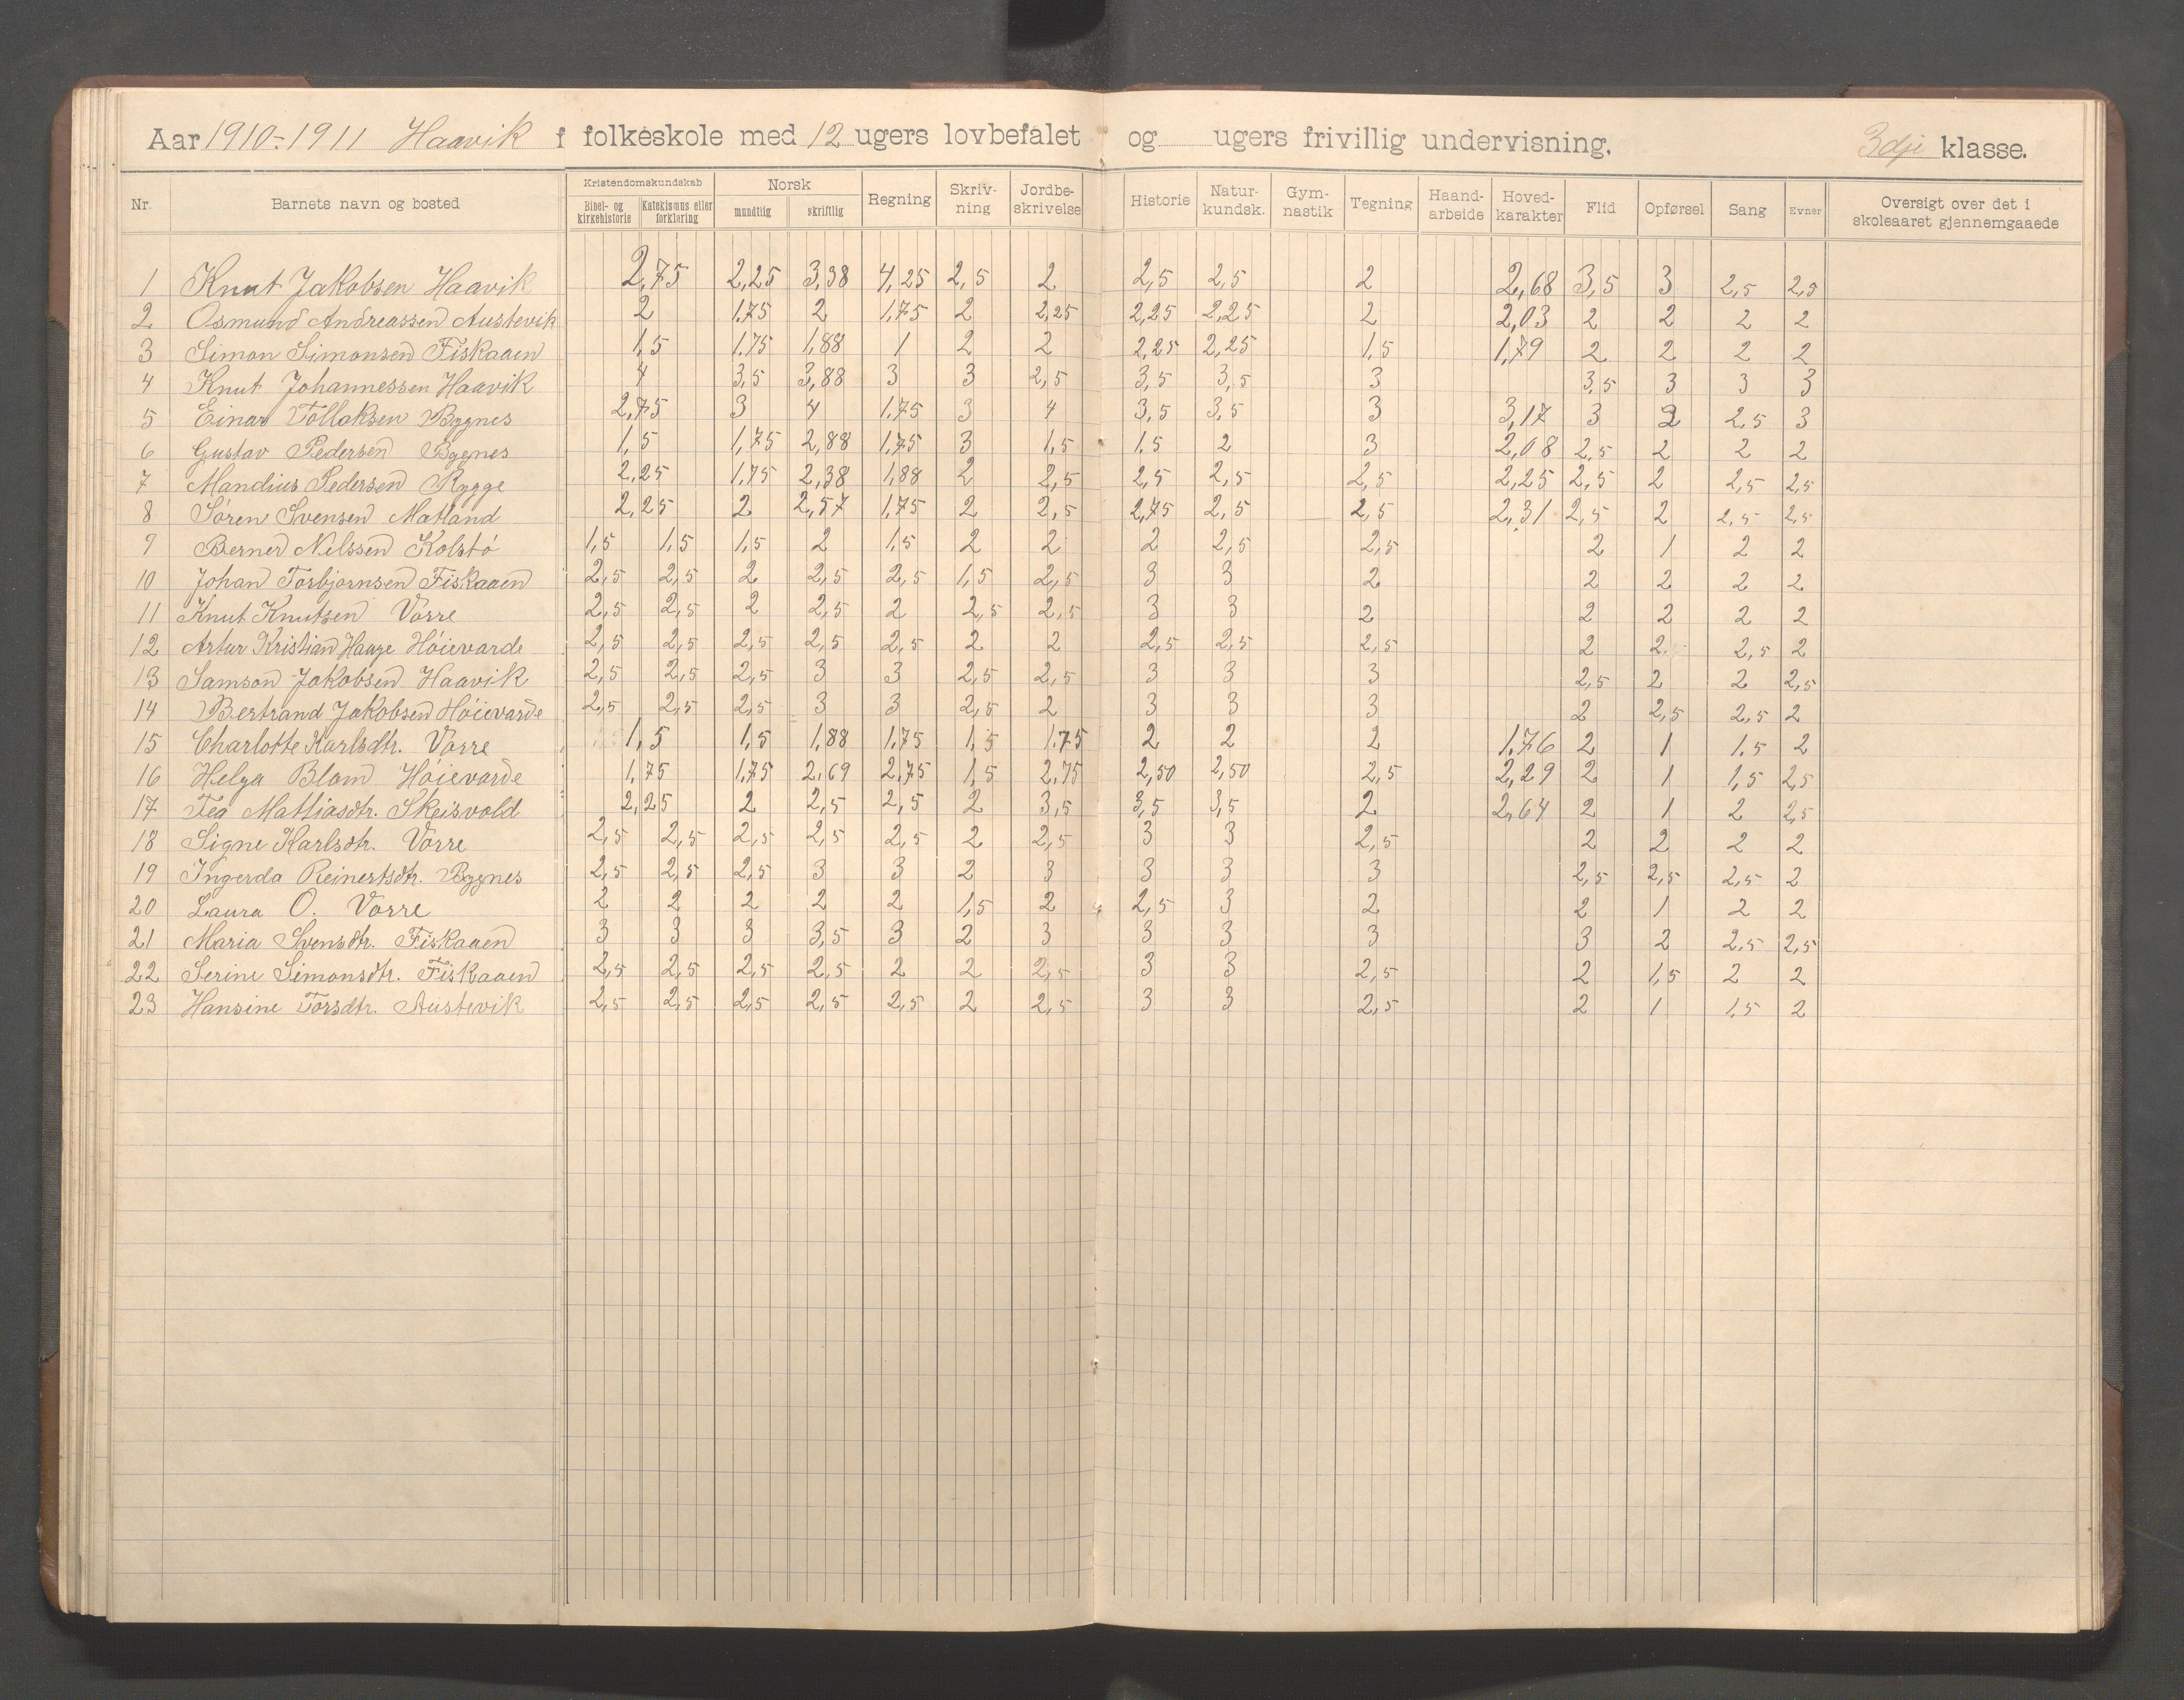 Aar 1910-1911 Haavik f folkeskole med 12 ugers lovbefalet og ugers frivillig undervisning. 3dje klasse.
Nr. Barnets navn og bosted Kristendomskundskab Bibel- og kirkehistorie Katekismus eller forklaring Norsk mundtlig skriftlig Regning Skriv-ning Jordbe-skrivelse Historie Natur-kundsk. Gym-nastik Tegning Haand-arbeide Hoved-karakter Flid Opførsel Sang Evner Oversigt over det i skoleaaret gjennemgaaede
1 Knut Jakobsen Haavik 2,75 2,25 3,38 4,25 2,5 2 2,5 2,5 2 2,68 3,5 3 2,5 2,5
2 Osmund Andreassen Austevik 2 1,75 2 1,75 2 2,25 2,25 2,25 2 2,03 2 2 2 2
3 Simon Simonsen Fiskaaen 1,5 1,75 1,88 1 2 2 2,25 2,25 1,5 1,79 2 2 2 2
4 Knut Johannessen Haavik 4 3,5 3,88 3 3 2,5 3,5 3,5 3 3,5 3 3 3
5 Einar Tollaksen Bygnes 2,75 3 4 1,75 3 4 3,5 3,5 3 3,17 3 2 2,5 3
6 Gustav Pedersen Bygnes 1,5 1,75 2,88 1,75 3 1,5 1,5 2 3 2,08 2,5 2 2 2
7 Mandius Pedersen Rygge 2,25 1,75 2,38 1,88 2 2,5 2,5 2,5 2,5 2,25 2,5 2 2,5 2,5
8 Søren Svensen Matland 2,25 2 2,57 1,75 2 2,5 2,75 2,5 2,5 2,31 2,5 2 2,5 2,5
9 Berner Nilssen Kolstó 1,5 1,5 1,5 2 1,5 2 2 2 2,5 2,5 2 1 2 2
10 Johan Torbjørnsen Fiskaaen 2,5 2,5 2 2,5 2,5 1,5 2,5 3 3 2 2 2 2 2
11 Knut Knutsen Vorre 2,5 2,5 2 2,5 2 2,5 2,5 3 3 2 2 2 2 2
12 Artur Kristian Hauge Hóievarde 2,5 2,5 2,5 2,5 2,5 2 2 2,5 2,5 2,5 2 2 2,5 2
13 Samson Jakobsen Haavik 2,5 2,5 2,5 3 3 2,5 2,5 3 3 3 2,5 2 2 2,5
14 Bertrand Jakobsen Hóievarde 2,5 2,5 2,5 3 3 2,5 2 3 3 3 2 2,5 2,5 2
15 Charlotte Karlsdtr. Vorre 1,5 1,5 1,88 1,75 1,5 1,75 2 2 2 1,76 2 1 1,5 2
16 Helga Blom Hóievarde 1,75 1,75 2,69 2,75 1,5 2,75 2,50 2,50 2,5 2,29 2 1 1,5 2,5
17 Tea Mattiasdtr. Skeisvold 2,25 2 2,5 2,5 2 3,5 3,5 3,5 2 2,64 2 1 2 2,5
18 Signe Karlsdtr. Vorre 2,5 2,5 2,5 2,5 2,5 2 2,5 3 3 2,5 2 2 2 2
19 Ingerda Reinertsdtr. Bygnes 2,5 2,5 2,5 3 3 2 3 3 3 3 2,5 2,5 2,5 2
20 Laura O. Vorre 2 2 2 2 2 1,5 2 2,5 3 2 2 1 2 2
21 Maria Svensdtr. Fiskaaen 3 3 3 3,5 3 2 3 3 3 3 3 2 2,5 2,5
22 Serine Simonsdtr. Fiskaaen 2,5 2,5 2,5 2,5 2 2 2,5 3 3 2,5 2 1,5 2 2
23 Hansine Torsdtr. Austevik 2,5 2,5 2,5 2,5 2,5 2 2,5 3 3 2,5 2 1 1,5 2